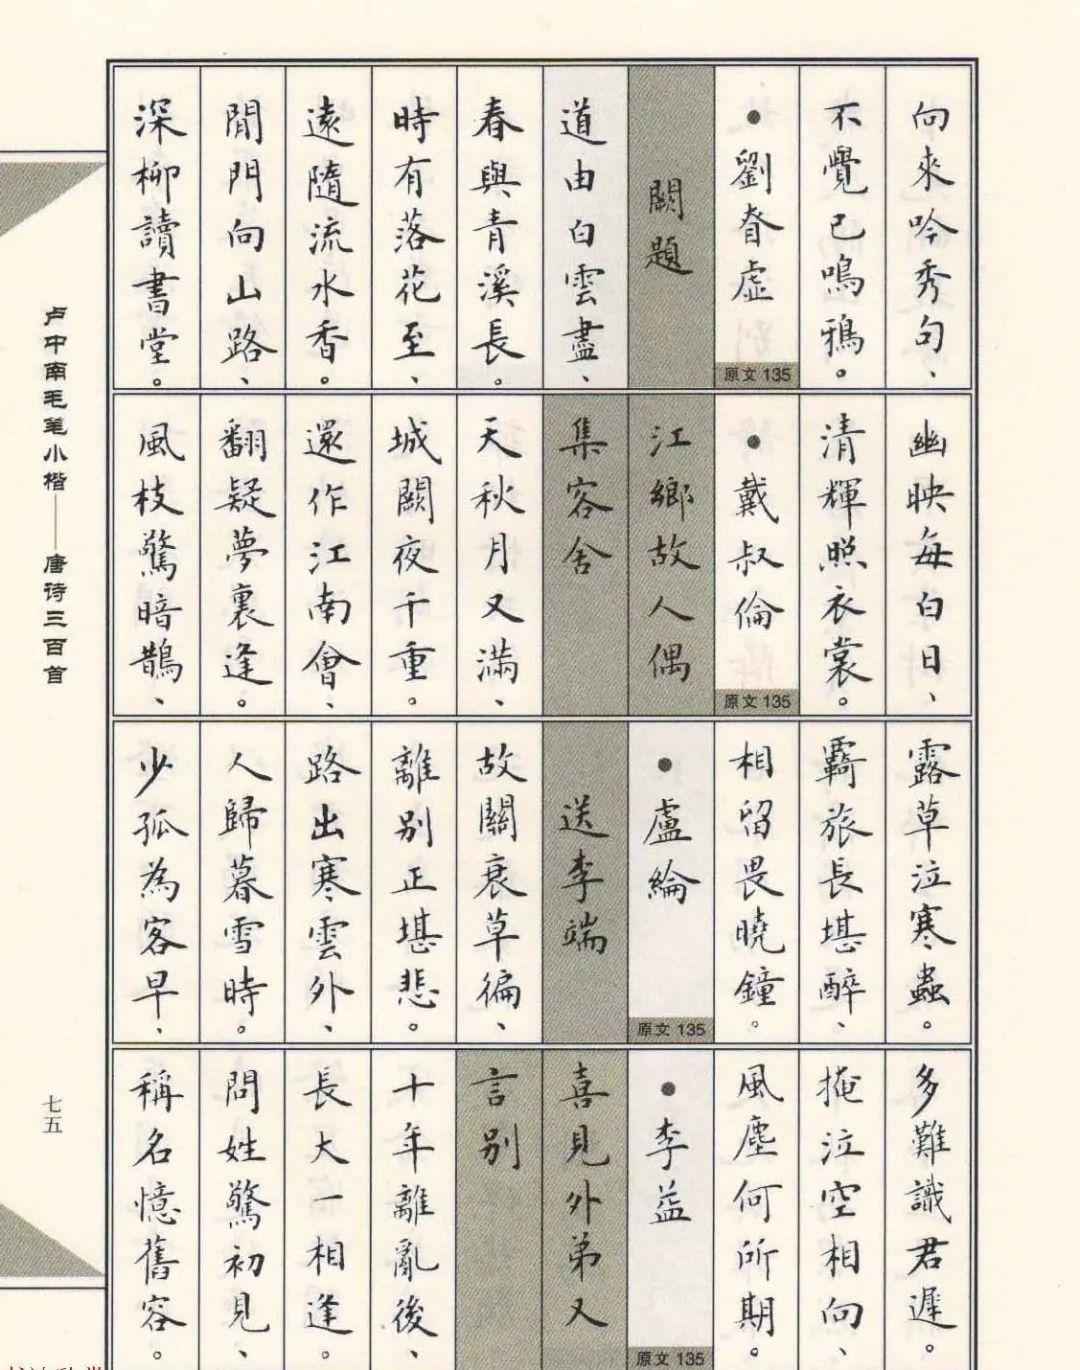 向來吟秀句、
不覺已鳴鴉。
•劉眘虛
原文 135
闕題
道由白雲盡、
春與青溪長。
時有落花至、
遠隨流水香。
閒門向山路、
深柳讀書堂。
幽映每白日、
清輝照衣裳。
•戴叔倫
原文 135
江鄉故人偶
集客舍
天秋月又滿、
城闕夜千重。
還作江南會、
翻疑夢裏逢。
風枝驚暗鵲、
露草泣寒蟲。
羈旅長堪醉、
相留畏曉鐘。
•盧綸
原文 135
送李端
故關衰草徧、
離別正堪悲。
路出寒雲外、
人歸暮雪時。
少孤為客早、
多難識君遲。
掩泣空相向、
風塵何所期。
•李益
原文 135
喜見外弟又
言別
十年離亂後、
長大一相逢。
問姓驚初見、
稱名憶舊容。
卢中南毛笔小楷——唐诗三百首
七五